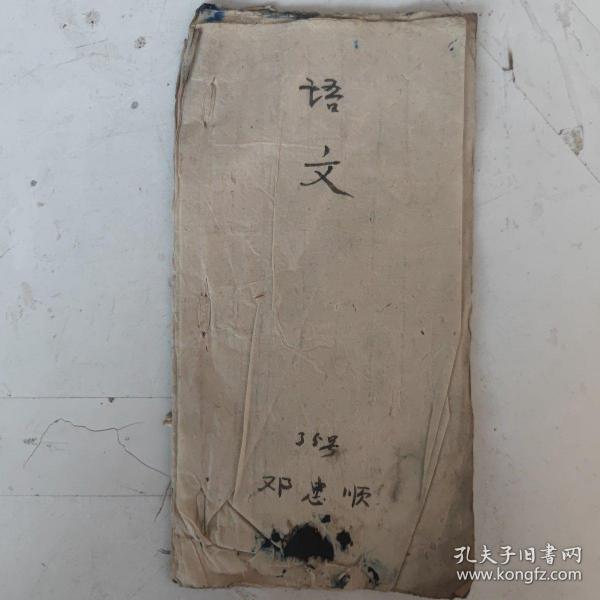 语
文
35号
邓忠顺
孔夫子旧書网
www.kongfz.com